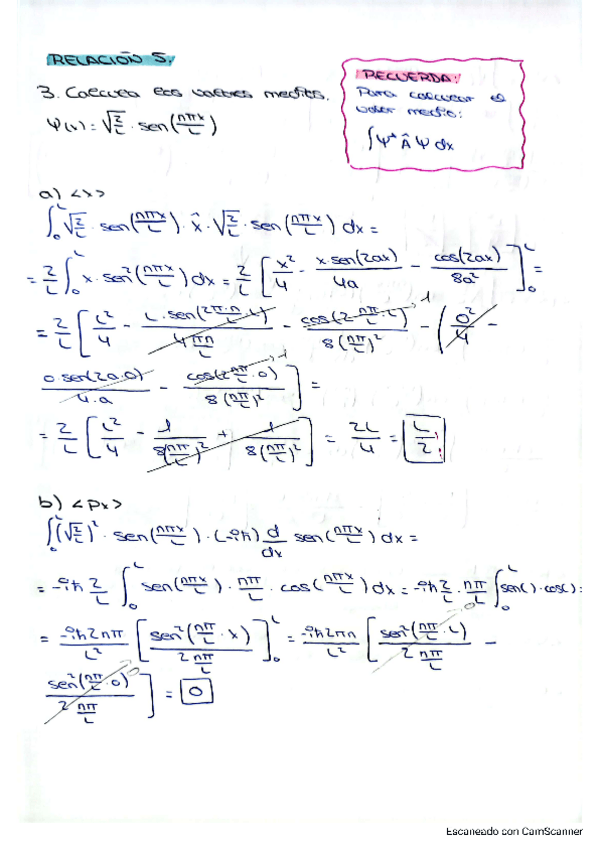 RELACIÓN 5.
3. Calcula los valores medios.
Ψ(x) = √(2/L) · sen(nπx/L)
RECUERDA:
Para calcular el
valor medio:
∫Ψ* Â Ψ dx
a) <x>
∫₀ᴸ √(2/L) · sen(nπx/L) · x̂ · √(2/L) · sen(nπx/L) dx =
= 2/L ∫₀ᴸ x · sen²(nπx/L) dx = 2/L [x²/4 - x·sen(2ax)/4a - cos(2ax)/8a²]₀ᴸ =
= 2/L [L²/4 - L·sen(2π·n/L · L)/4πn/L - cos(2 nπ/L · L)/8(nπ/L)² - (0²/4 -
0·sen(2a·0)/4·a - cos(2 nπ/L · 0)/8(nπ/L)²] =
= 2/L [L²/4 - 1/8(nπ/L)² + 1/8(nπ/L)²] = 2L/4 = L/2
b) <Px>
∫₀ᴸ (√(2/L))² · sen(nπx/L) · (-iħ) d/dx sen(nπx/L) dx =
= -iħ 2/L ∫₀ᴸ sen(nπx/L) · nπ/L · cos(nπx/L) dx = -iħ 2/L · nπ/L ∫₀ᴸ sen()·cos() =
= -iħ2nπ/L² [sen²(nπ/L · x)/2 nπ/L]₀ᴸ = -iħ2πn/L² [sen²(nπ/L · L)/2 nπ/L -
sen²(nπ/L · 0)/2 nπ/L] = 0
Escaneado con CamScanner